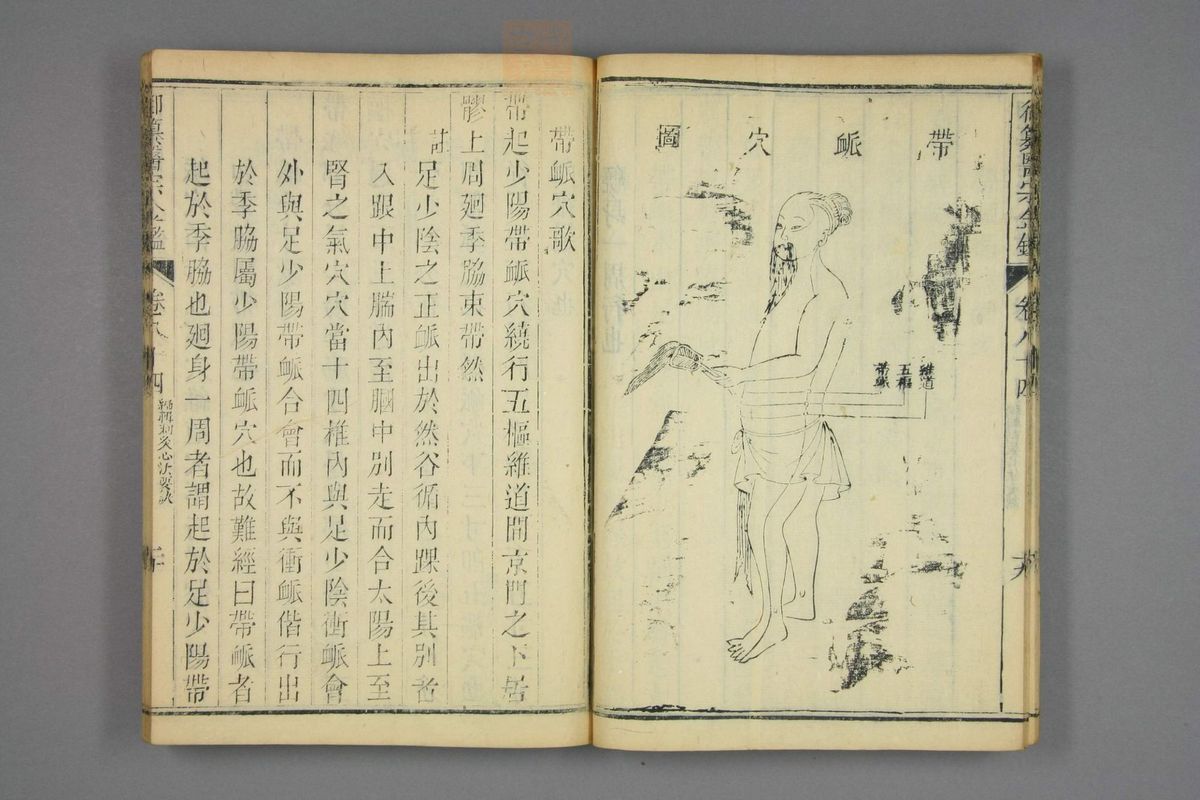 御纂醫宗金鑑
卷八十四
帶脈穴圖
維道
五樞
帶脈
帶脈穴歌
帶起少陽帶脈穴繞行五樞維道間京門之下居
髎上周廻季脇束帶然
註
足少陰之正脈出於然谷循內踝後其別者
入跟中上腨內至膕中別走而合太陽上至
腎之氣穴穴當十四椎內與足少陰衝脈會
外與足少陽帶脈合會而不與衝脈偕行出
於季脇屬少陽帶脈穴也故難經曰帶脈者
起於季脇也廻身一周者謂起於足少陽帶
御纂醫宗金鑑
卷八十四
編輯刺灸心法要訣